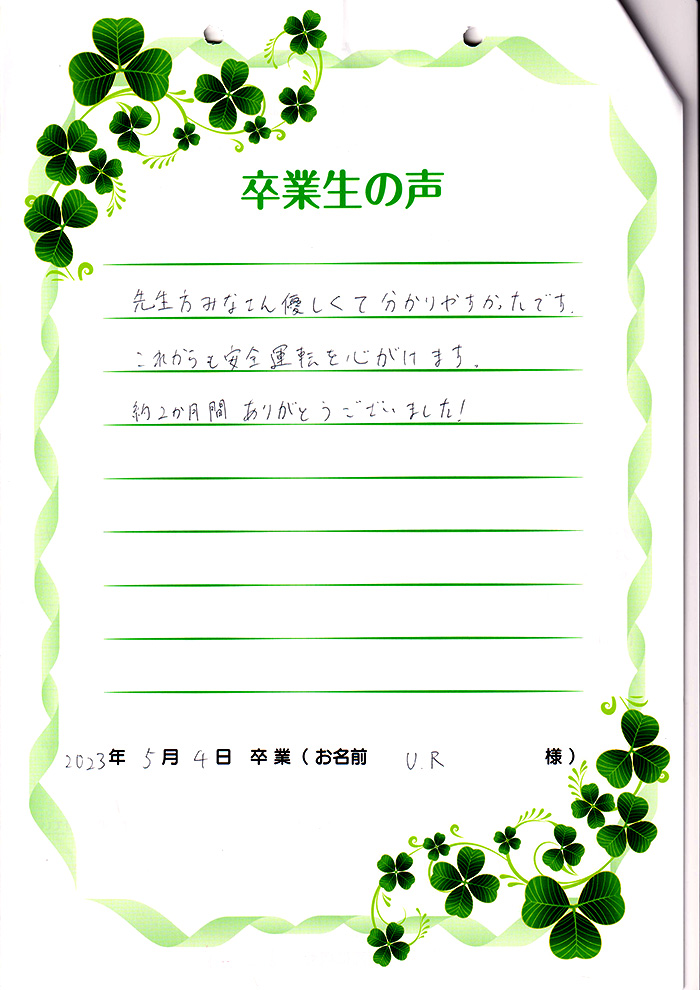 卒業生の声
先生方みなさん優しくて分かりやすかったです.
これからも安全運転を心がけます.
約2か月間ありがとうございました!
2023年 5月 4日 卒業(お名前 U.R 様)